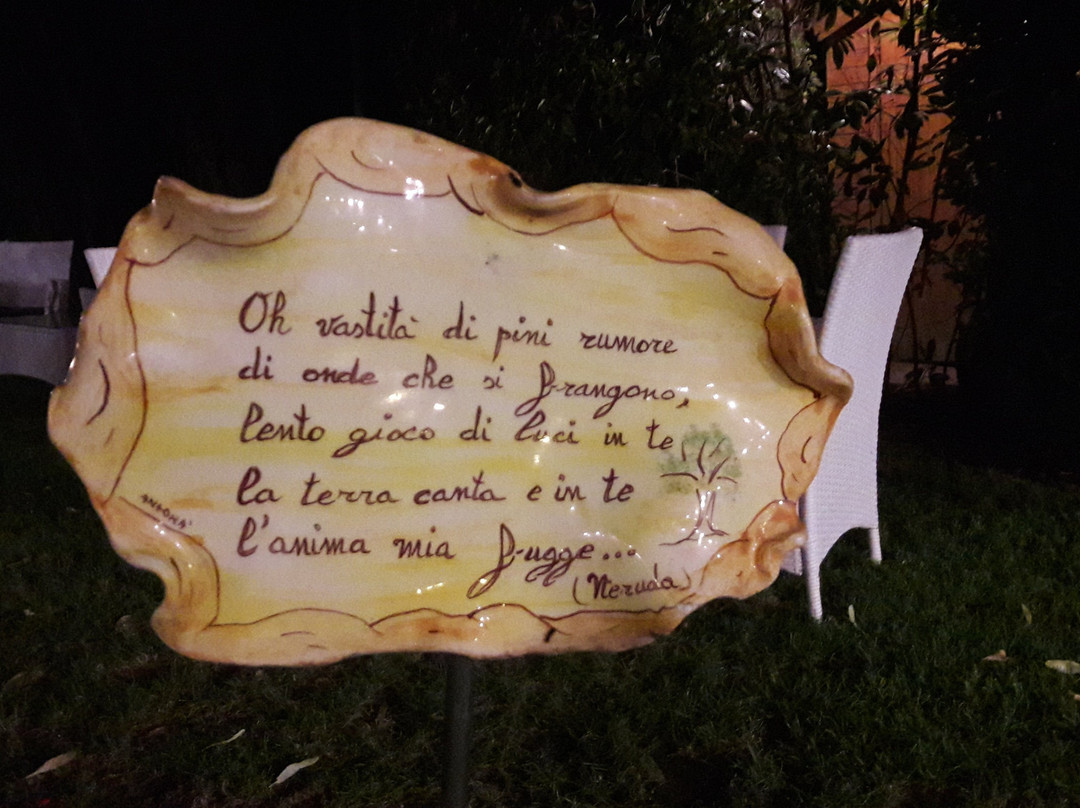 Oh vastità di pini rumore
di onde che si frangono,
lento gioco di luci in te
la terra canta e in te
l'anima mia fugge...
(Neruda)